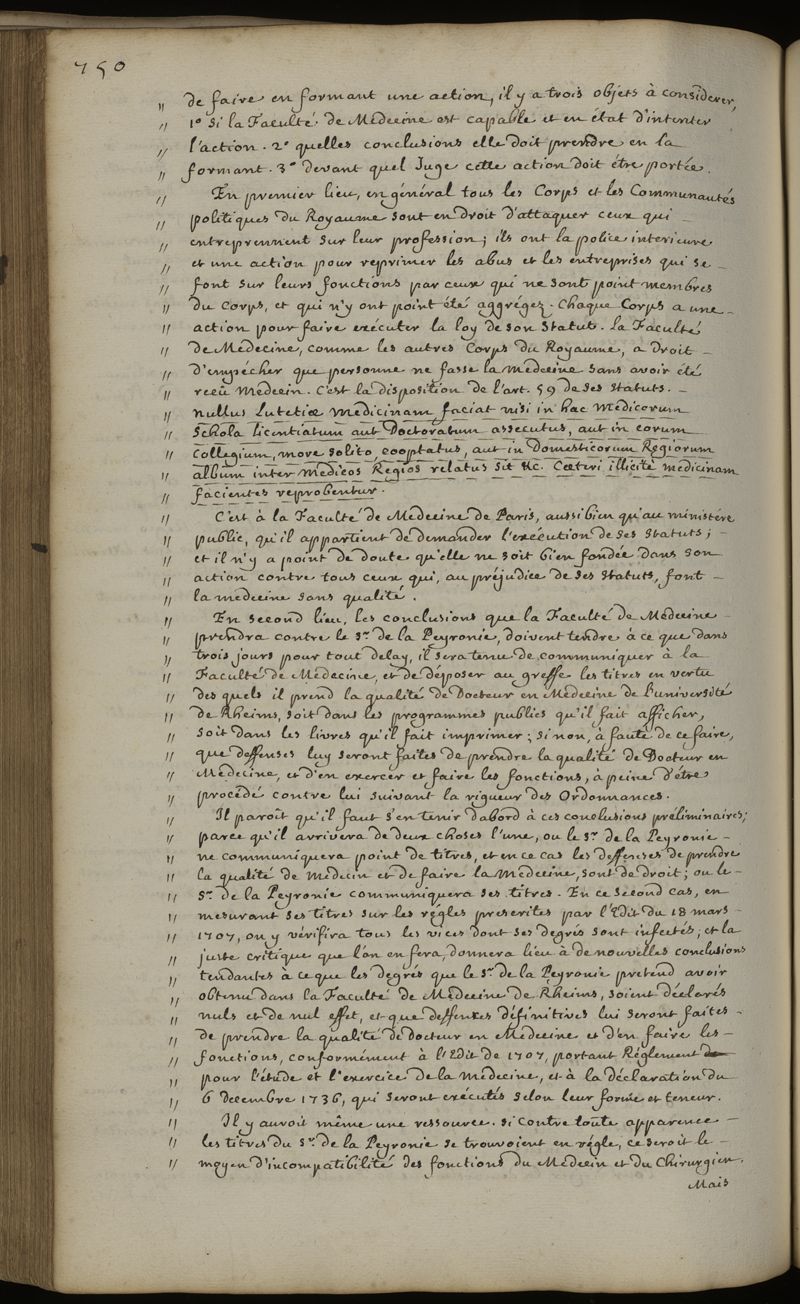 750
" de faire en formant une action, il y a trois objets à considerer,
" 1º si la Faculté de Médecine est capable et en état d'intenter
" l'action. 2º quelles conclusions elle doit prendre en la
" formant. 3º devant quel Juge cette action doit être portée.
" En premier lieu, en général tous les Corps et les Communautés
" politiques du Royaume sont en droit d'attaquer ceux qui -
" entreprennent sur leur profession; ils ont la police interieure
" et une action pour reprimer les abus et les entreprises qui se -
" font sur leurs fonctions par ceux qui ne sont point membres
" du Corps, et qui n'y ont point été aggrégez. Chaque Corps a une -
" action pour faire exécuter la loy de son Statut. La Faculté
" de Médecine, comme les autres Corps du Royaume, a droit -
" d'empêcher que personne ne fasse la Médecine sans avoir été
" receu Medecin. C'est la disposition de l'art. 59 de ses Statuts. -
" nullus Lutetiæ medicinam faciat nisi in hac Medicorum
" Schola licentiatum aut Doctoratum assecutus, aut in eorum
" Collegium, more solito, cooptatus, aut in Domesticorum Regiorum
" album inter Medicos Regios relatus sit &c. Cæteri illicitè medicinam
" facientes reprobentur.
" C'est à la Faculté de Médecine de Paris, aussi bien qu'au ministére
" public, qu'il appartient de demander l'exécution de ses Statuts; -
" et il n'y a point de doute qu'elle ne soit bien fondée dans son
" action contre tous ceux qui, au préjudice de ses Statuts, font -
" la médecine sans qualité.
" En second lieu, les conclusions que la Faculté de Médecine -
" prendra contre le Sr. de la Peyronie, doivent tendre à ce que dans
" trois jours pour tout delay, il sera tenu de communiquer à la
" Faculté de Médecine, et de déposer au greffe les titres en vertu
" des quels il prend la qualité de Docteur en Médecine de l'université
" de Rheims, soit dans les programmes publics qu'il fait afficher,
" soit dans les livres qu'il fait imprimer; si non, à faute de ce faire,
" que deffenses luy seront faites de prendre la qualité de Docteur en
" Médecine, et d'en exercer et faire les fonctions, à peine d'être
" procédé contre lui suivant la rigueur des Ordonnances.
" Il paroît qu'il faut s'en tenir d'abord à ces conclusions préliminaires;
" parce qu'il arrivera de deux choses l'une, ou le Sr. de la Peyronie -
" ne communiquera point de titres, et en ce cas les deffenses de prendre
" la qualité de Médecin et de faire la Médecine, sont de droit; ou le -
" Sr. de la Peyronie communiquera ses titres. En ce second cas, en
" mesurant ses titres sur les régles prescrites par l'Edit du 18 mars -
" 1707, on y vérifira tous les vices dont ses degrés sont infectés; et la
" juste critique que l'on en fera, donnera lieu à de nouvelles conclusions
" tendantes à ce que les degrés que le Sr. de la Peyronie pretend avoir
" obtenu dans la Faculté de Médecine de Rheims, soient déclarés
" nuls et de nul effet, et que deffenses définitives lui seront faites -
" de prendre la qualité de Docteur en Médecine et d'en faire les -
" fonctions, conformément à l'Edit de 1707, portant Réglement
" pour l'étude et l'exercice de la Médecine, et à la déclaration du
" 6 Decembre 1736, qui seront exécutés selon leur forme et teneur.
" Il y auroit même une ressource. Si contre toute apparence -
" les titres du Sr. de la Peyronie se trouvoient en régle, ce seroit le -
" moyen d'incompatibilité des fonctions du Médecin et du Chirurgien.
Mais